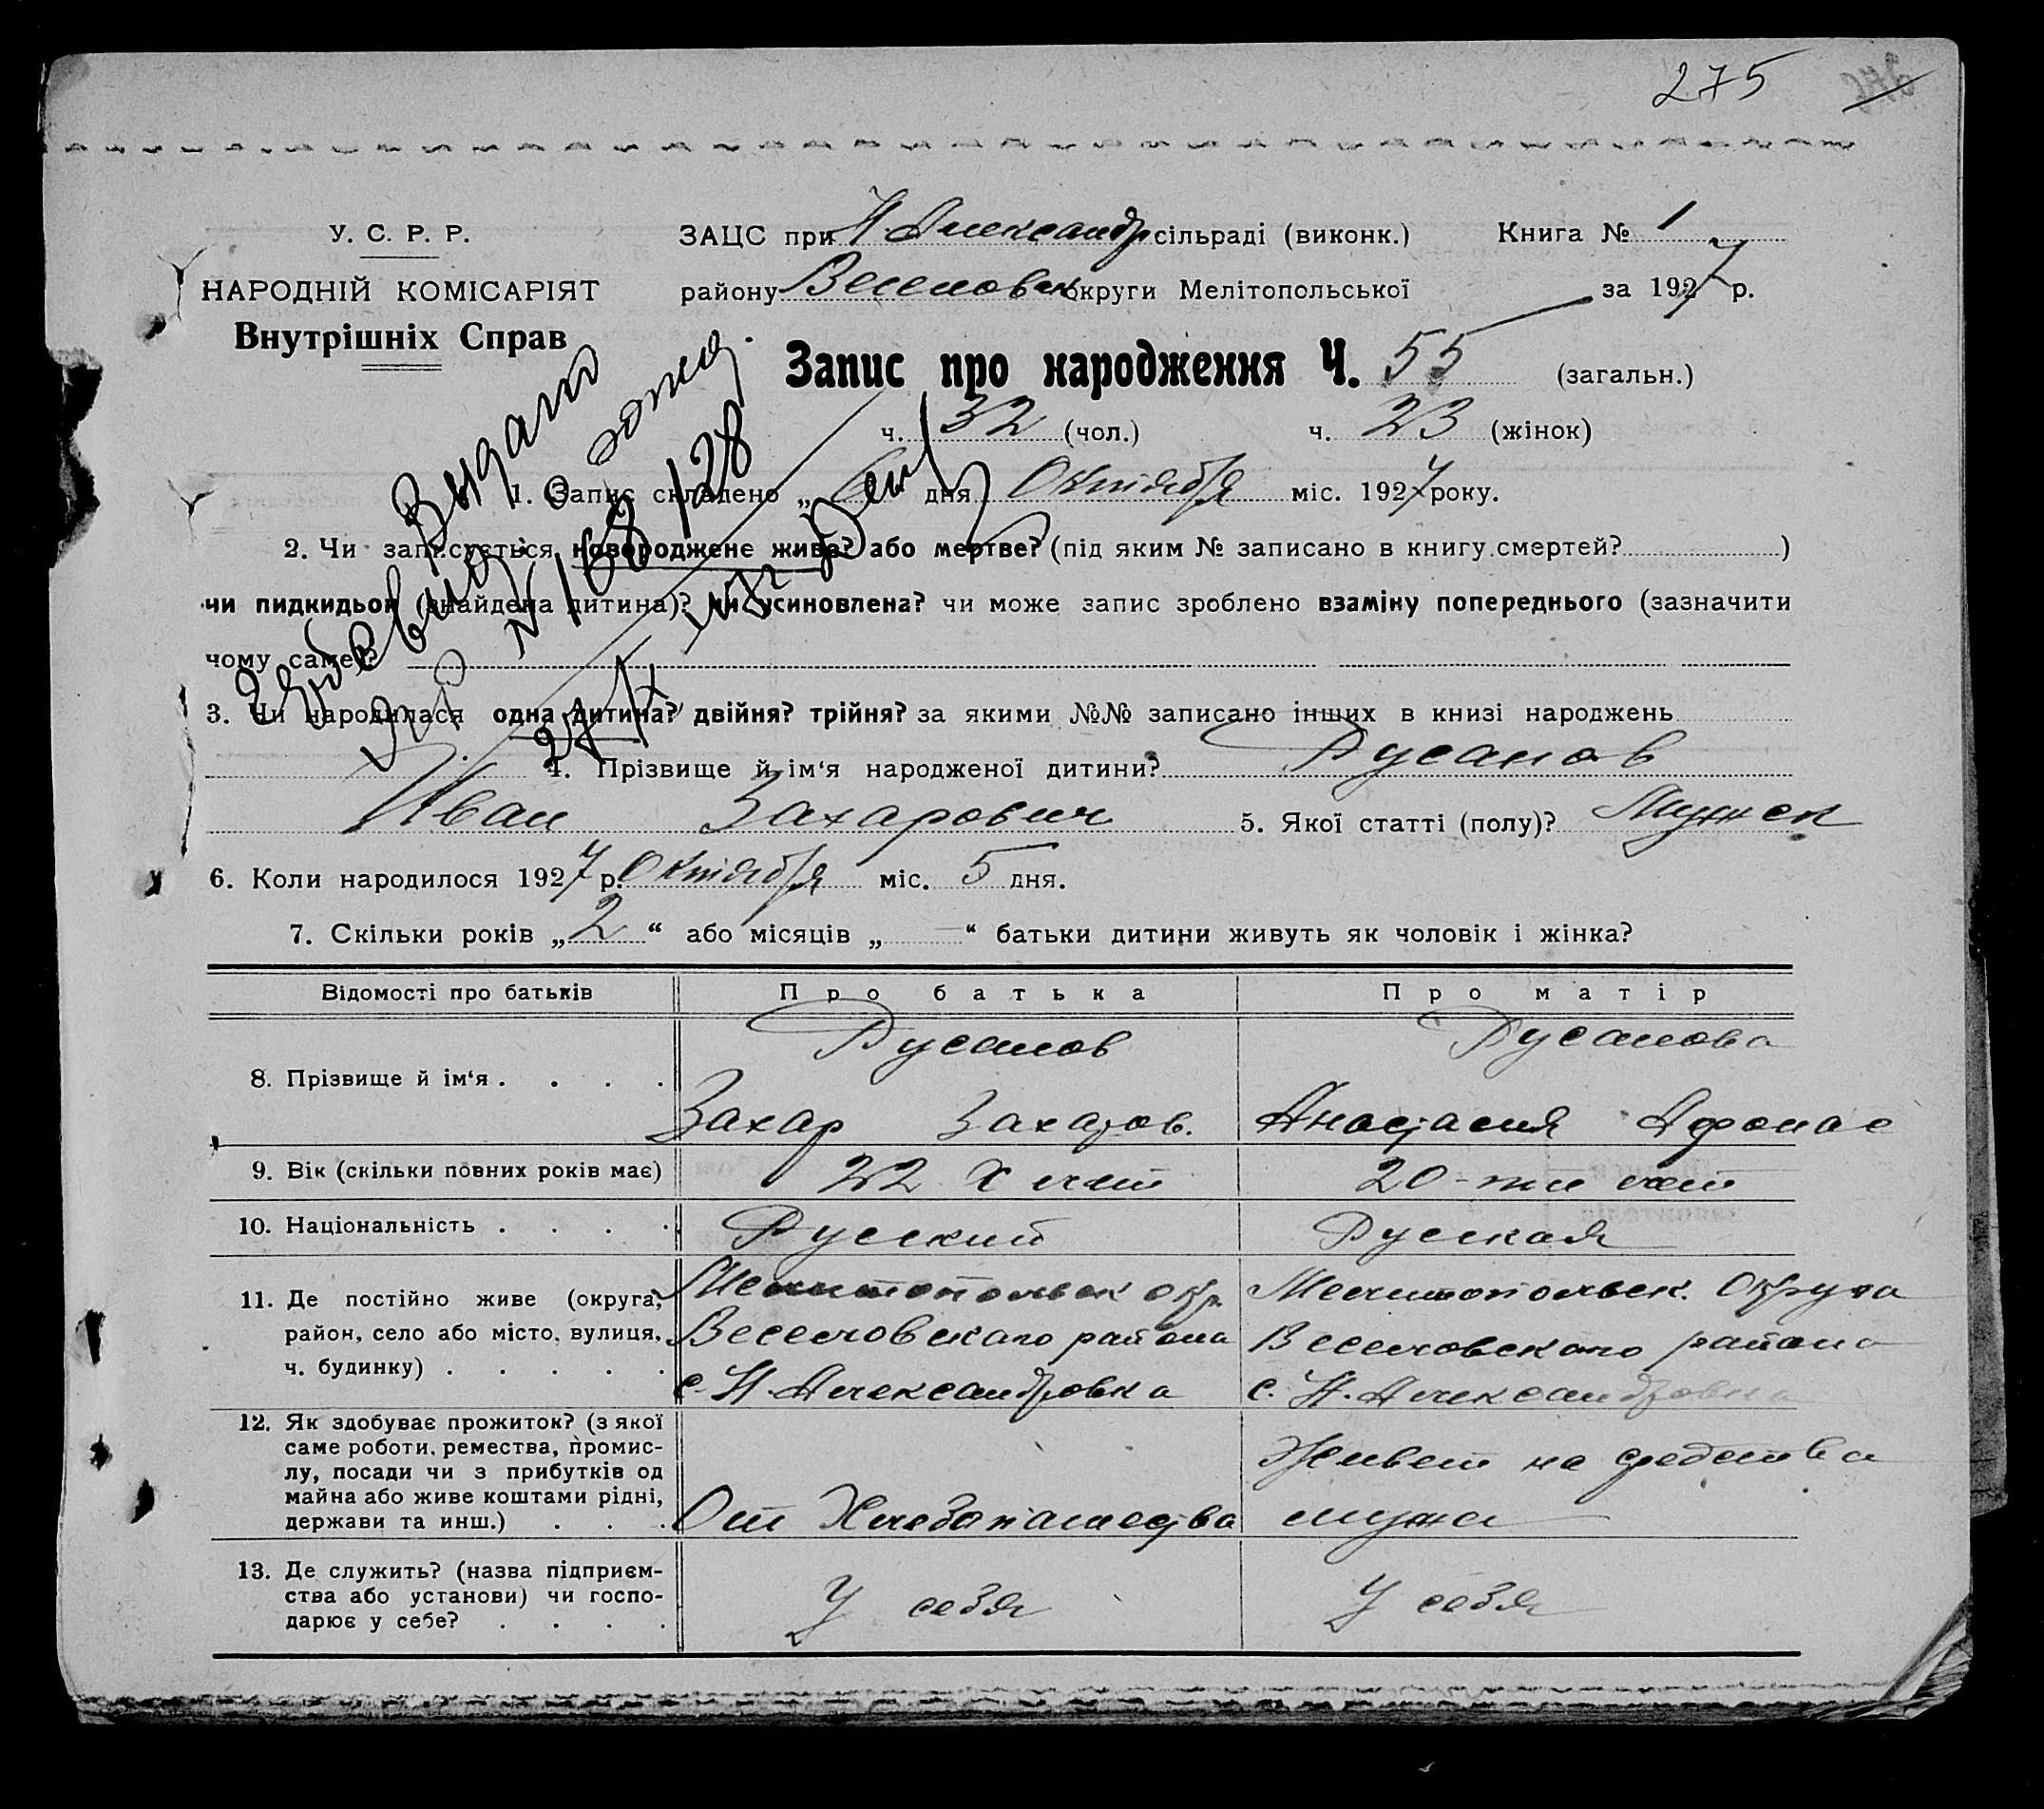 275
У. С. Р. Р.
НАРОДНІЙ КОМІСАРІЯТ
Внутрішніх Справ
ЗАЦС при Н Александр сільраді (виконк.) Книга № 1
району Веселовск округи Мелітопольської за 1927 р.
Запис про народження Ч. 55 (загальн.)
ч. 32 (чол.) ч. 23 (жінок)
Выдано
о рожд.
№ 168/128
27/X
1. Запис складено „ 6 дня Октября міс. 1927 року.
2. Чи записується новороджене живе? або мертве? (під яким № записано в книгу смертей? )
чи пидкидьок (знайдена дитина)? чи усиновлена? чи може запис зроблено взаміну попереднього (зазначити
чому саме?
3. Чи народилася одна дитина? двійня? трійня? за якими №№ записано інших в книзі народжень
4. Прізвище й ім‘я народженої дитини? Русанов
Иван Захарович 5. Якої статті (полу)? Мужск
6. Коли народилося 1927 р. Октября міс. 5 дня.
7. Скільки років „ 2 “ або місяців „ — “ батьки дитини живуть як чоловік і жінка?
Відомості про батьків Про батька Про матір
8. Прізвище й ім‘я . . . . Русанов Русанова
Захар Захаров. Анастасия Афонас
9. Вік (скільки повних років має) 22 х лет 20-ти лет
10. Національність . . . . Русский Русская
11. Де постійно живе (округа, Мелитопольск окр. Мелитопольск. Округа
район, село або місто, вулиця, Веселовского района Веселовского района
ч. будинку) . . . . . с. Н. Александровка с. Н. Александровка
12. Як здобуває прожиток? (з якої
саме роботи, ремества, промис-
лу, посади чи з прибутків од Живет на средства
майна або живе коштами рідні,
держави та инш.) . . . От Хлебопашества мужа
13. Де служить? (назва підприєм-
ства або установи) чи госпо- У себя У себя
дарює у себе? . . . .